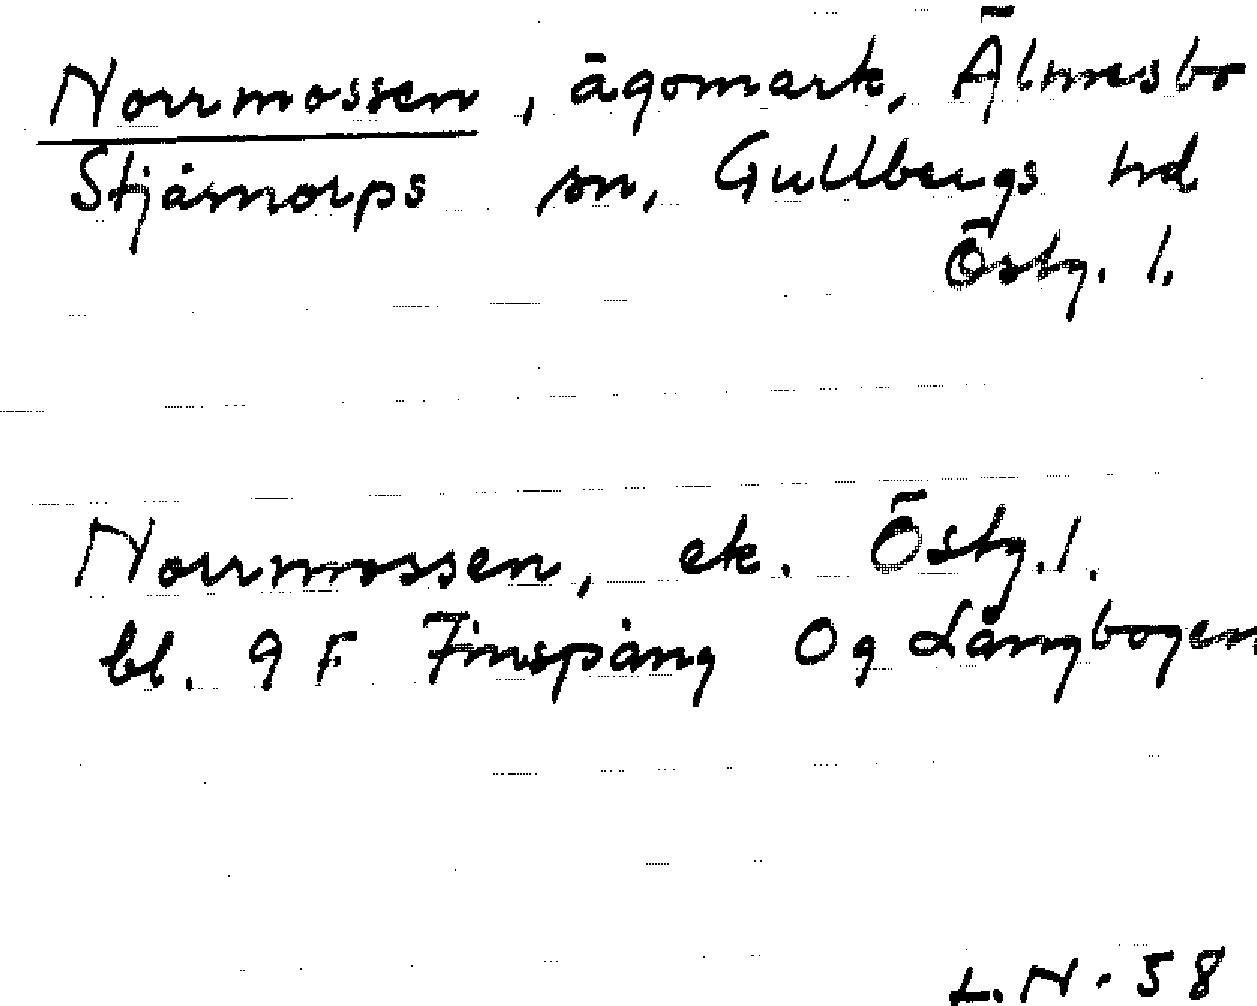 Norrmossen, ägomark, Älmesbo
Stjärnorps sn, Gullbergs hd
Östg. l.
Norrmossen, ek. Östg. l.
bl. 9 F Finspång 0g Långbogen
L. N - 58